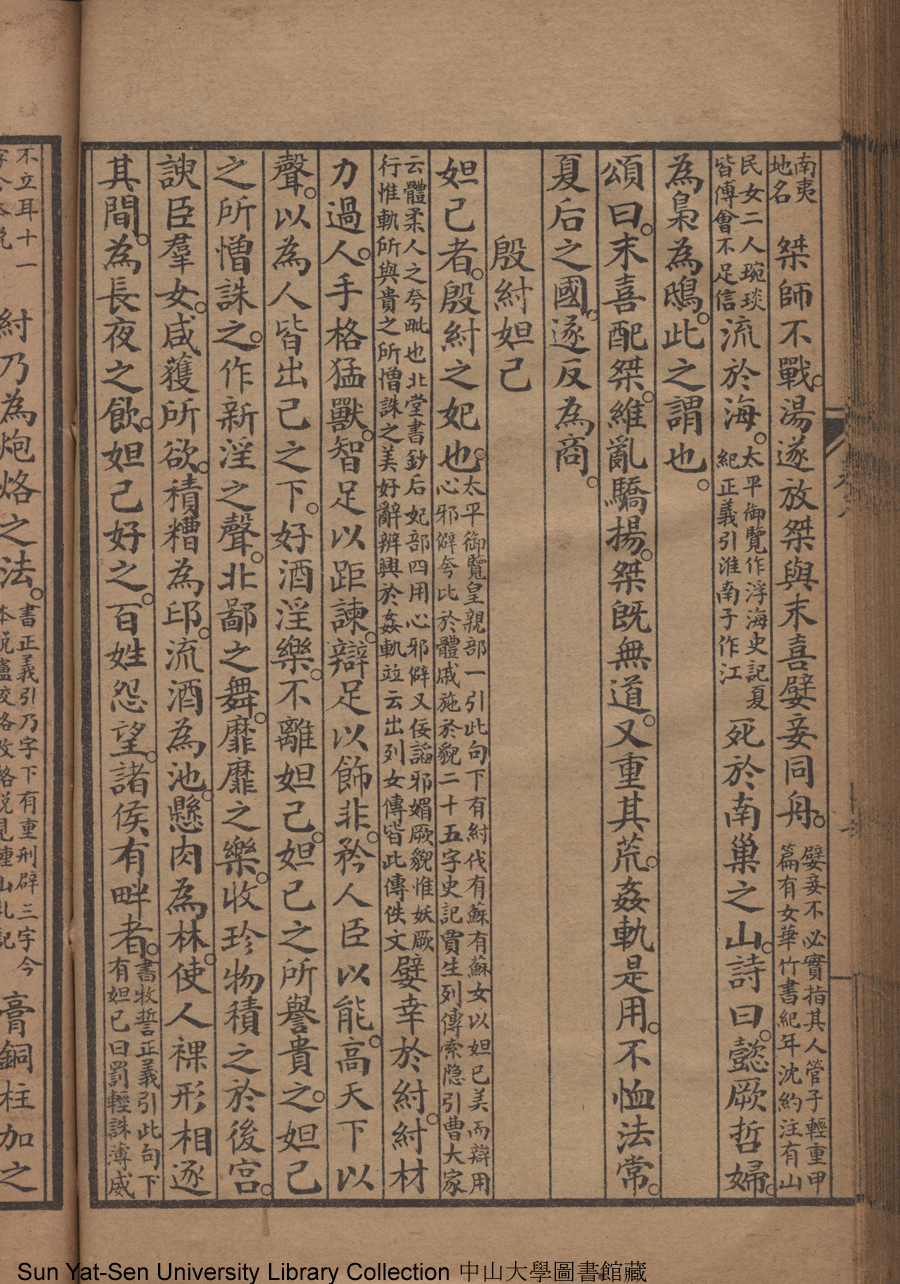 南夷地名桀師不戰。湯遂放桀與末喜嬖妾同舟。嬖妾不必實指其人管子輕重甲篇有女華竹書紀年沈約注有山
民女二人琬琰皆傅會不足信流於海。太平御覽作浮海史記夏紀正義引淮南子作江死於南巢之山。詩曰。懿厥哲婦。
為梟為鴟。此之謂也。
頌曰。末喜配桀。維亂驕揚。桀既無道。又重其荒。姦軌是用。不恤法常。
夏后之國。遂反為商。
殷紂妲己
妲己者。殷紂之妃也。太平御覽皇親部一引此句下有紂伐有蘇有蘇女以妲己美而辯用心邪僻夸比於體戚施於貌二十五字史記賈生列傳索隐引曹大家
云體柔人之夸毗也北堂書鈔后妃部四用心邪僻又佞謟邪媚厥貌惟妖厥行惟軌所與貴之所憎誅之美好辭辨興於姦軌竝云出列女傳皆此傳佚文嬖幸於紂。紂材
力過人。手格猛獸。智足以距諫。辯足以飾非。矜人臣以能。高天下以
聲。以為人皆出己之下。好酒淫樂。不離妲己。妲己之所譽貴之。妲己
之所憎誅之。作新淫之聲。北鄙之舞。靡靡之樂。收珍物積之於後宮。
諛臣羣女。咸獲所欲。積糟為邱。流酒為池。懸肉為林。使人裸形相逐
其間。為長夜之飲。妲己好之。百姓怨望。諸侯有畔者。書牧誓正義引此句下有妲己曰罰輕誅薄威
不立耳十一
紂乃為炮烙之法。書正義引乃字下有重刑辟三字今
膏銅柱加之
Sun Yat-Sen University Library Collection 中山大學圖書館藏